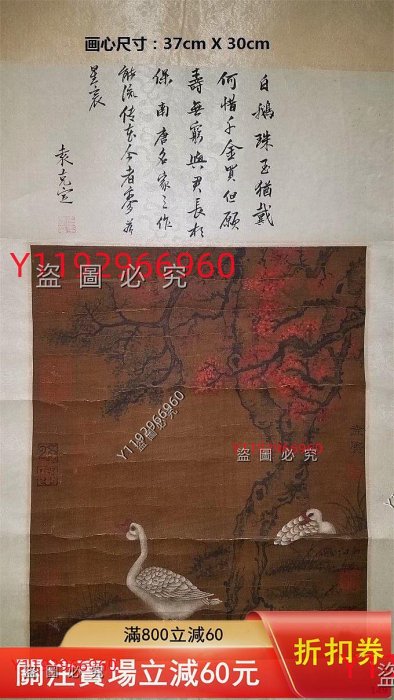 画心尺寸：37cm X 30cm
白鵝珠玉猶戴
何惜千金買但願
壽無窮與君長相
保南唐名家之作
能流传至今者寥若
星辰
袁克定
Y1192966960
盜圖必究
Y1192966960
盜圖必究
Y1192966960
盜圖必究
滿800立減60
關注賣場立減60元
折扣券